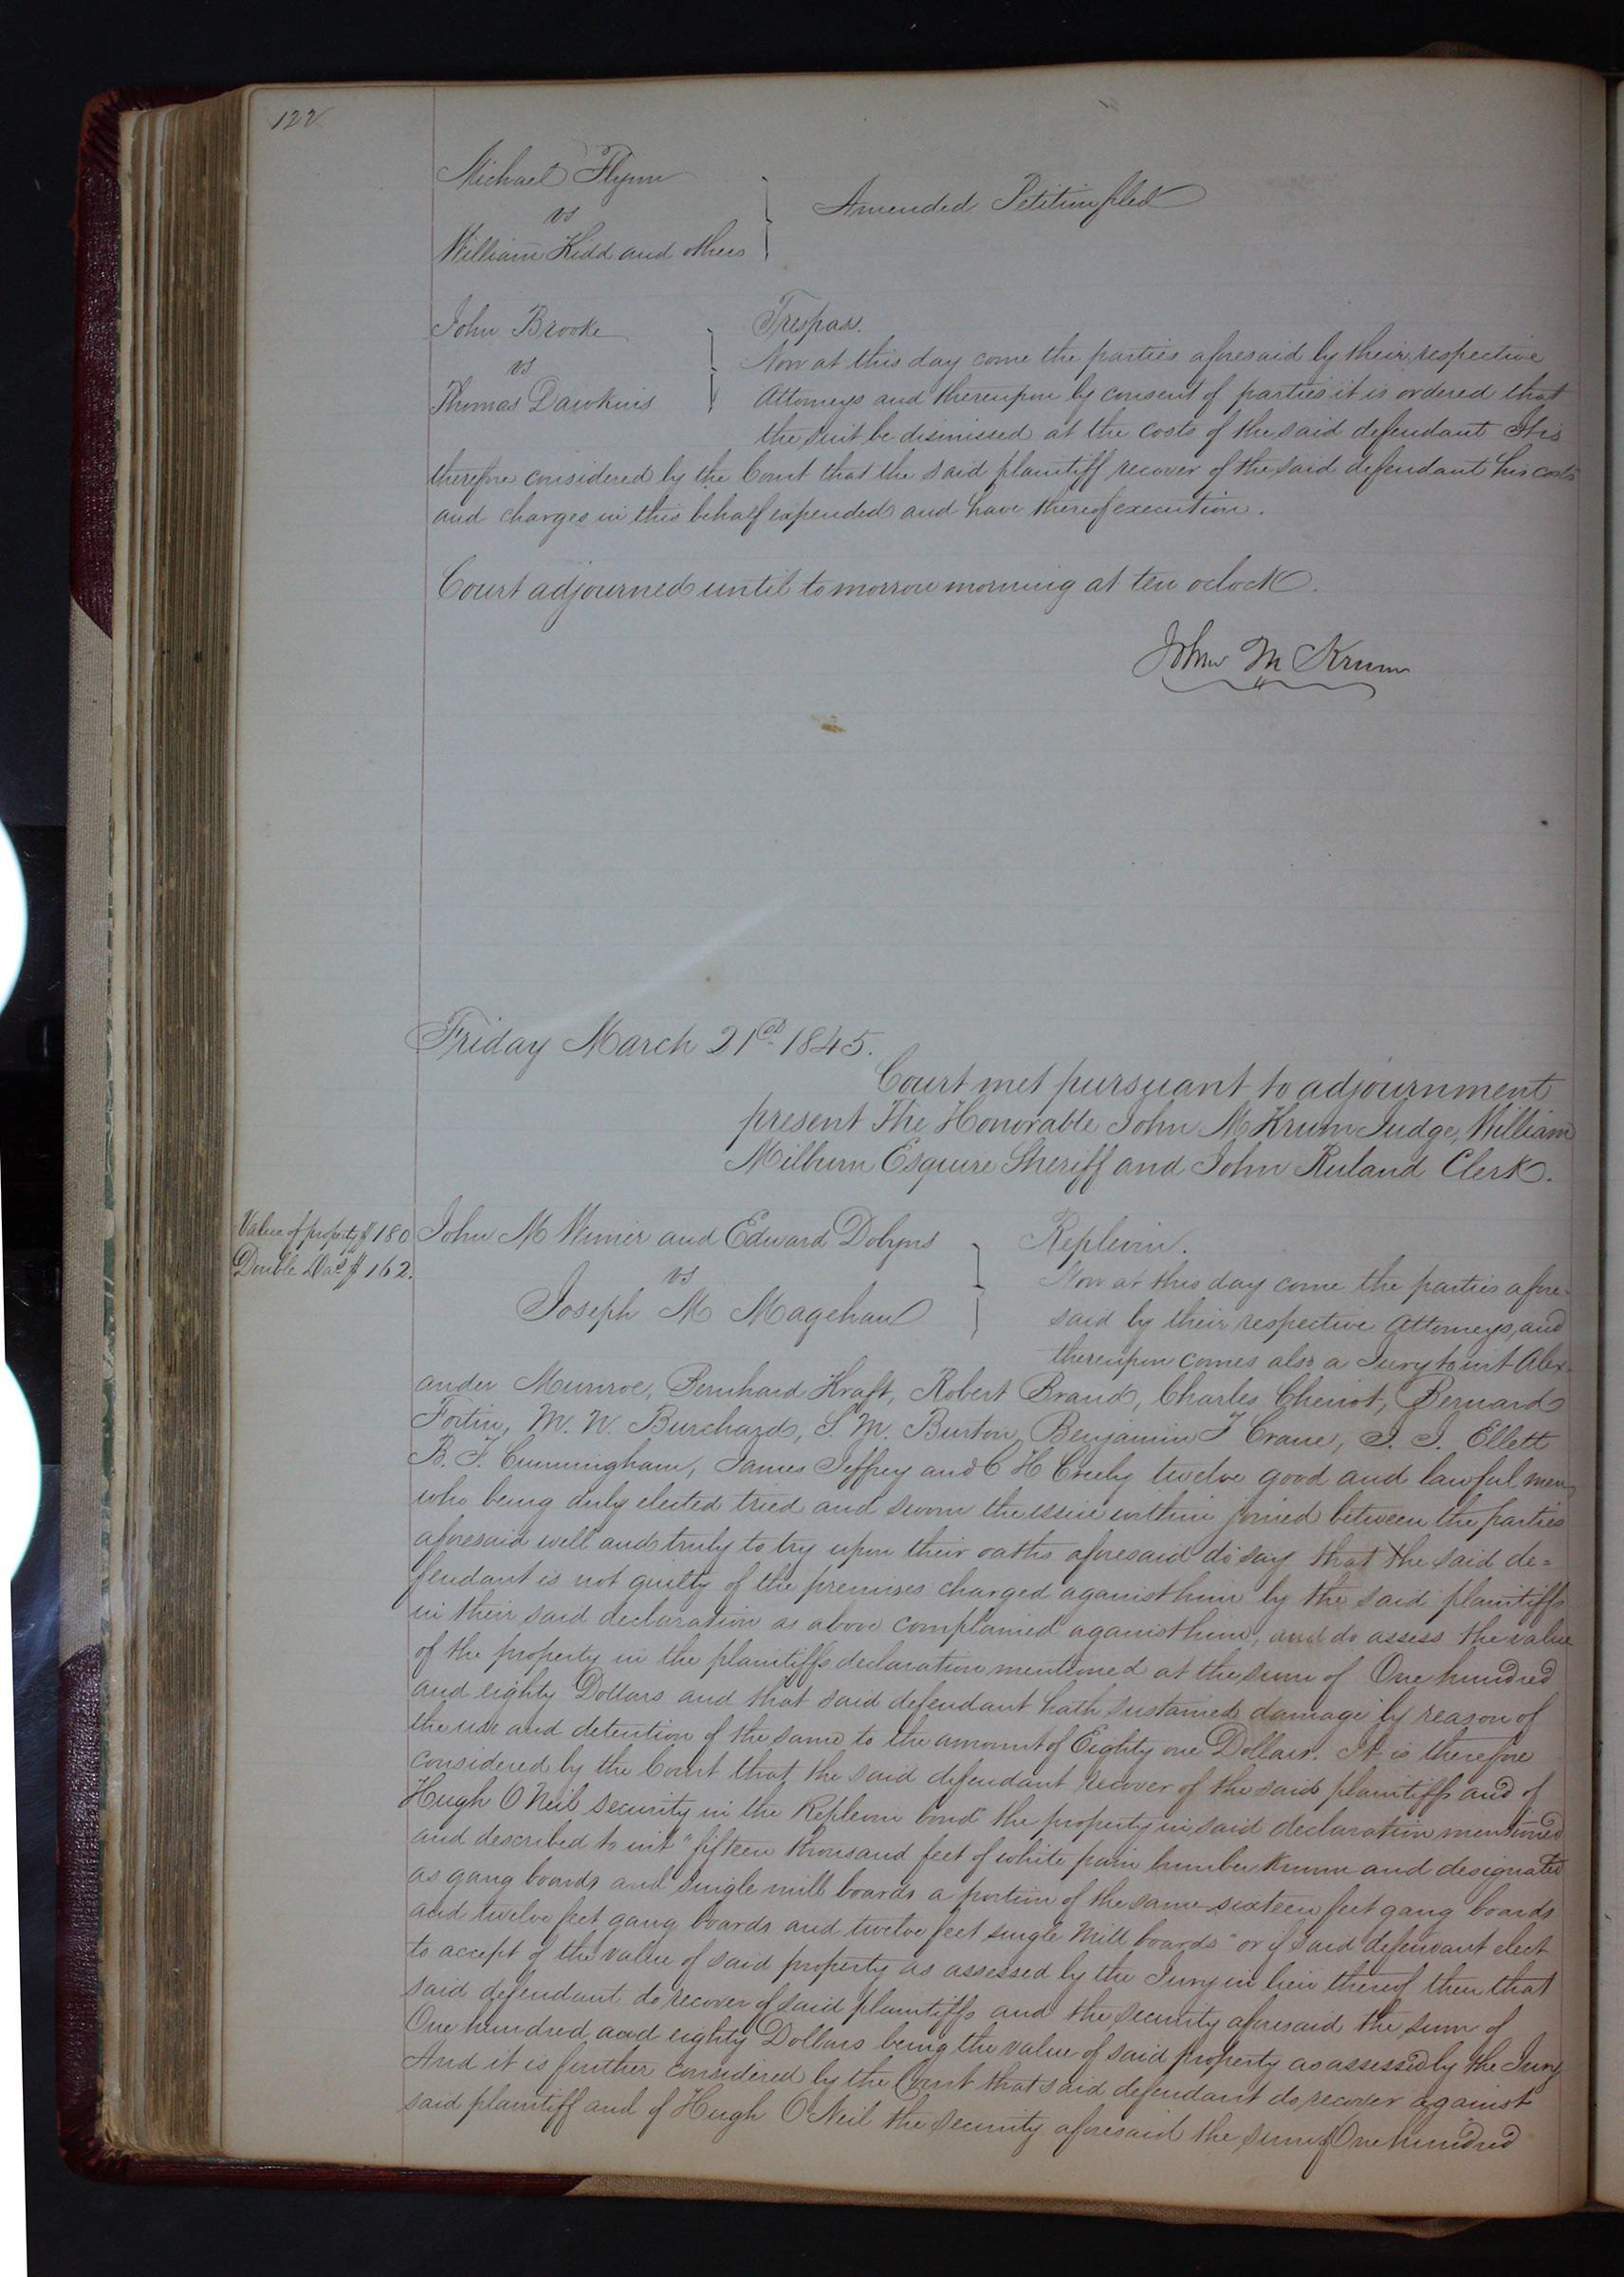 122
Michael Flynn
vs
William Kidd and others
Amended Petition filed
John Brooke
vs
Thomas Dawkins
Trespass.
Now at this day come the parties aforesaid by their respective
Attorneys and thereupon by consent of parties it is ordered that
the suit be dismissed at the costs of the said defendant It is
therefore considered by the Court that the said plaintiff recover of the said defendant his costs
and charges in this behalf expended and have thereof execution.
Court adjourned until tomorrow morning at ten oclock.
John M Krum
Friday March 21st 1845.
Court met pursuant to adjournment
present The Honorable John M Krum Judge, William
Milburn Esquire Sheriff and John Ruland Clerk.
Value of property $180
Double Das $162.
John M Wimer and Edward Dobyns
vs
Joseph M Magehan
Replevin.
Now at this day come the parties afore-
said by their respective Attorneys, and
thereupon comes also a Jury to wit Alex-
ander Munroe, Bernhard Kraft, Robert Brand, Charles Cheniot, Bernard
Fortin, M. W. Burchard, S. M. Burton, Benjamin F Crane, J. J. Ellett
B. F. Cunningham, James Jeffrey and C H Creely twelve good and lawful men
who being duly elected tried and sworn the issue within joined between the parties
aforesaid well and truly to try upon their oaths aforesaid do say that the said de=
fendant is not guilty of the premises charged against him by the said plaintiffs
in their said declaration as above complained against him, and do assess the value
of the property in the plaintiffs declaration mentioned at the sum of One hundred
and eighty Dollars and that said defendant hath sustained damage by reason of
the use and detention of the same to the amount of Eighty one Dollars. It is therefore
considered by the Court that the said defendant recover of the said plaintiffs and of
Hugh O Neil security in the Replevin bond the property in said declaration mentioned
and described to wit "fifteen thousand feet of white pain lumber known and designated
as gang boards and single mill boards a portion of the same sixteen feet gang boards
and twelve feet gang boards and twelve feet single mill boards" or if said defendant elect
to accept of the value of said property as assessed by the Jury in lieu thereof then that
said defendant do recover of said plaintiffs and the security aforesaid the sum of
One hundred and eighty Dollars being the value of said property as assessed by the Jury
And it is further considered by the Court that said defendant do recover against
said plaintiff and of Hugh O Neil the security aforesaid the sum of One hundred